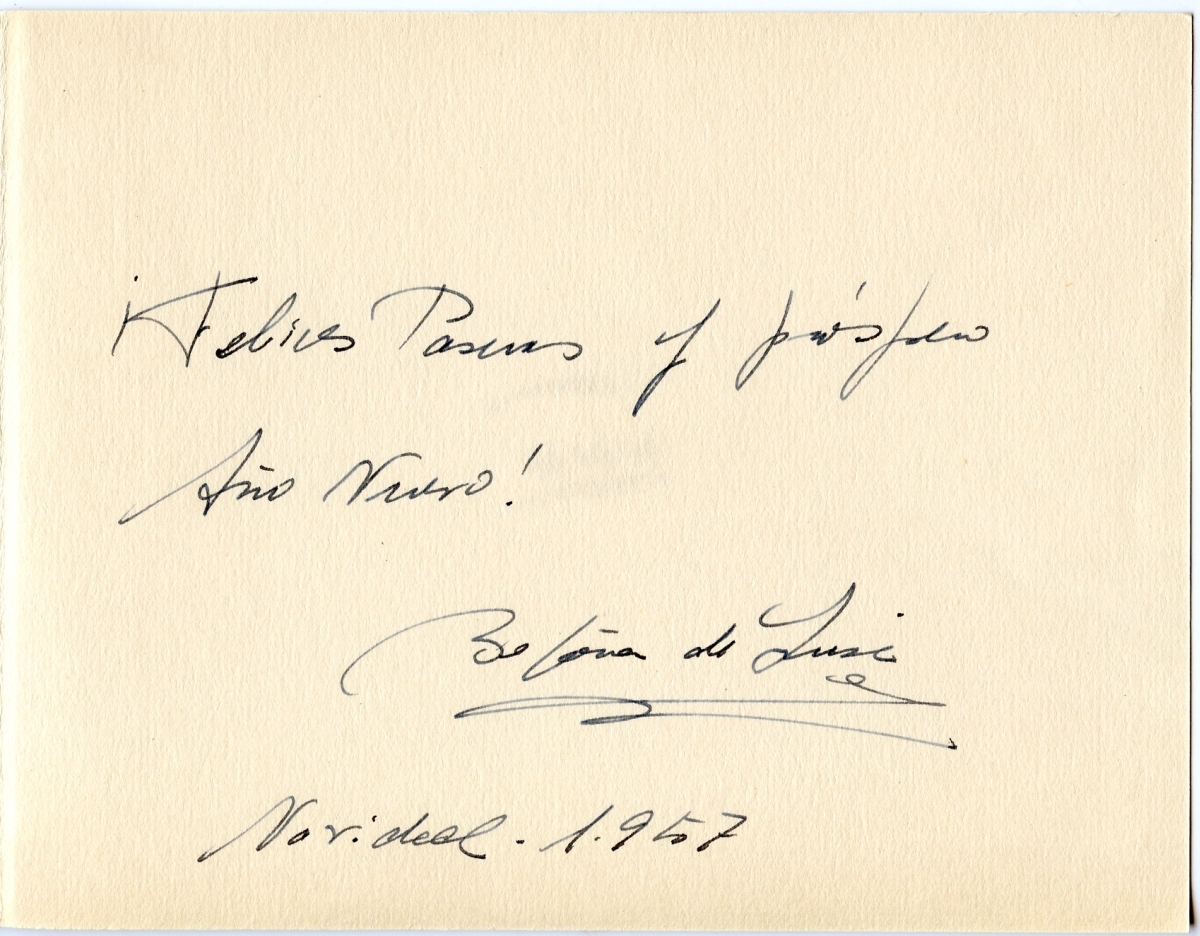 ¡Felices Pascuas y próspero
Año Nuevo!
de
Navidad. 1.957